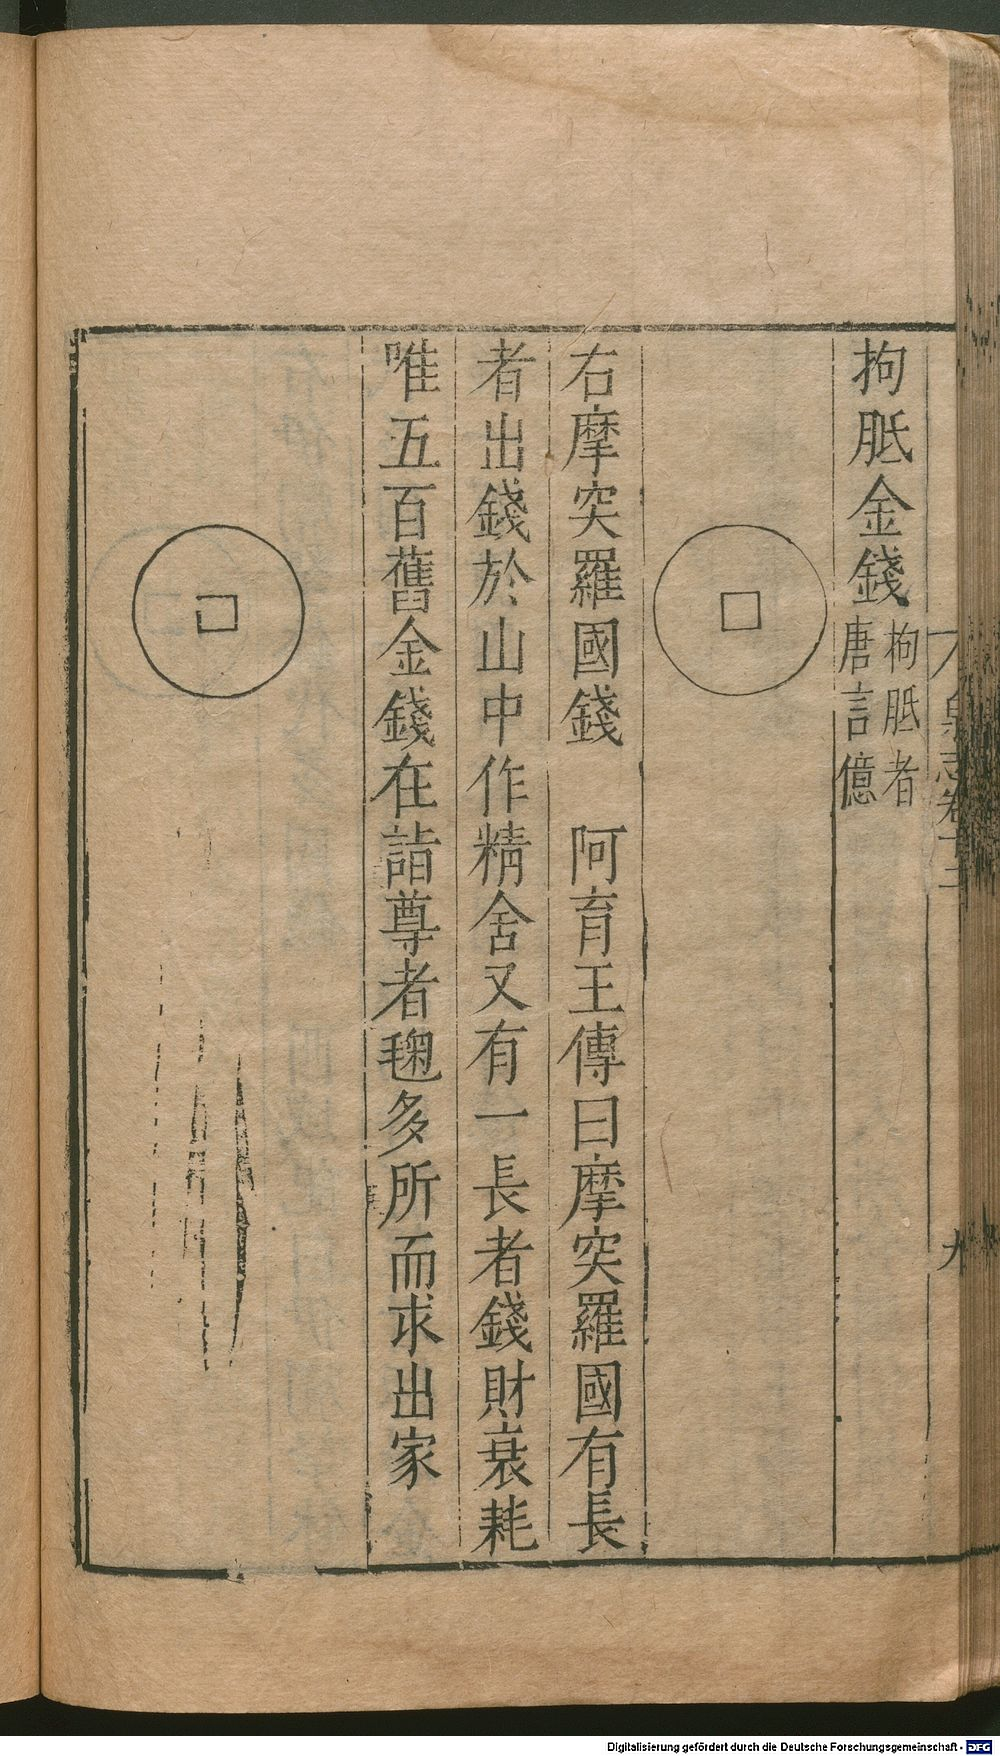 泉志卷十二
九
拘胝金錢拘胝者
唐言億
右摩突羅國錢　阿育王傳曰摩突羅國有長
者出錢於山中作精舍又有一長者錢財衰耗
唯五百舊金錢在詣尊者毱多所而求出家
Digitalisierung gefördert durch die Deutsche Forschungsgemeinschaft - DFG